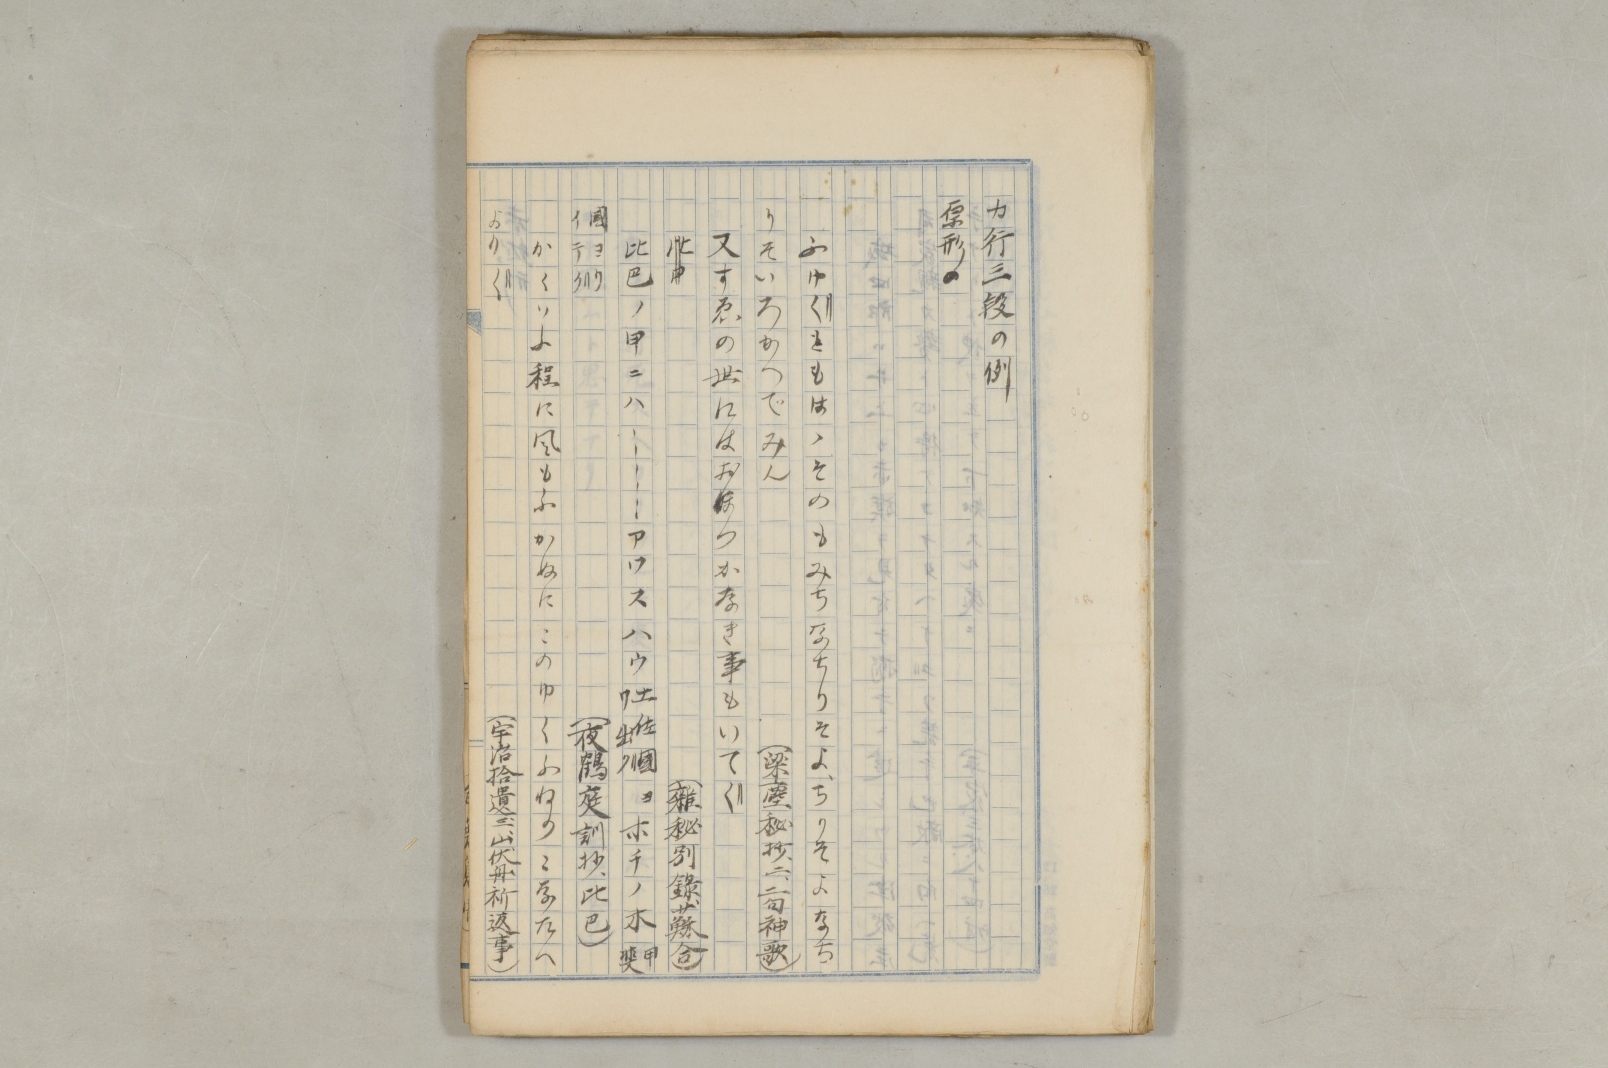 カ行三段の例
原形の
ふゆくともはゝそのもみちなちりそよちりそよなち
りそいろかへでみん
(梁塵秘抄、二、二句神歌)
又すゑの世にはおほつかなき事もいてく
(雜秘別錄、
比巴ノ甲ニハーーーアワスハウ 土佐國ヨ ホチノ木 甲
國ヨリ
イテク
(夜鶴庭訓抄、比巴)
かくいふ程に風もふかぬにこのゆくふねのこなたへ
よりく
(宇治拾遺三、山伏舟祈返事)